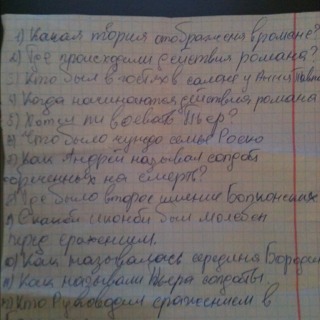 1) Какая теория отображена в романе?
2) Где происходили действия романа?
3) Кто был в гостях в салоне у Анны Павло
4) Когда начинаются действия романа
5) Хотел ли воевать Пьер?
6) Что было чуждо семье Росто
7) Как Андрей называл солдаты
обреченных на смерть?
8) Где было второе имение Болконских
9) С какой иконой был молебен
перед сражением.
10) Как называлась середина Бородин
11) Как называли Пьера солдаты
12) Кто Руководил сражением в